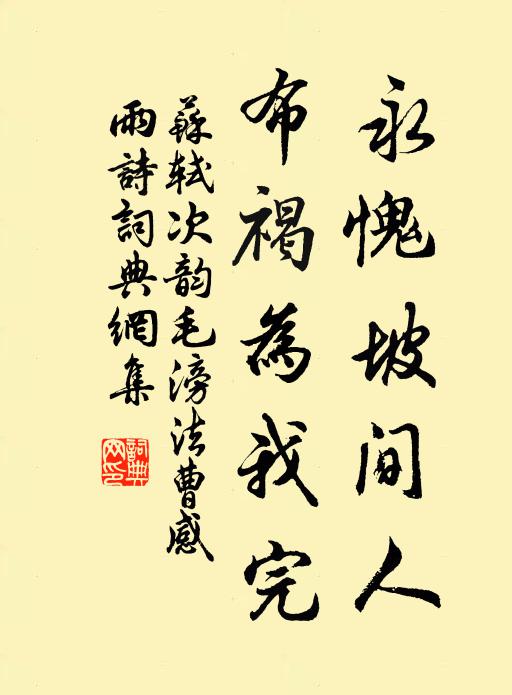 永愧坡間人
布褐為我完
蘇軾次韵毛滂法曹感
雨詩詞典網集
詞典網印